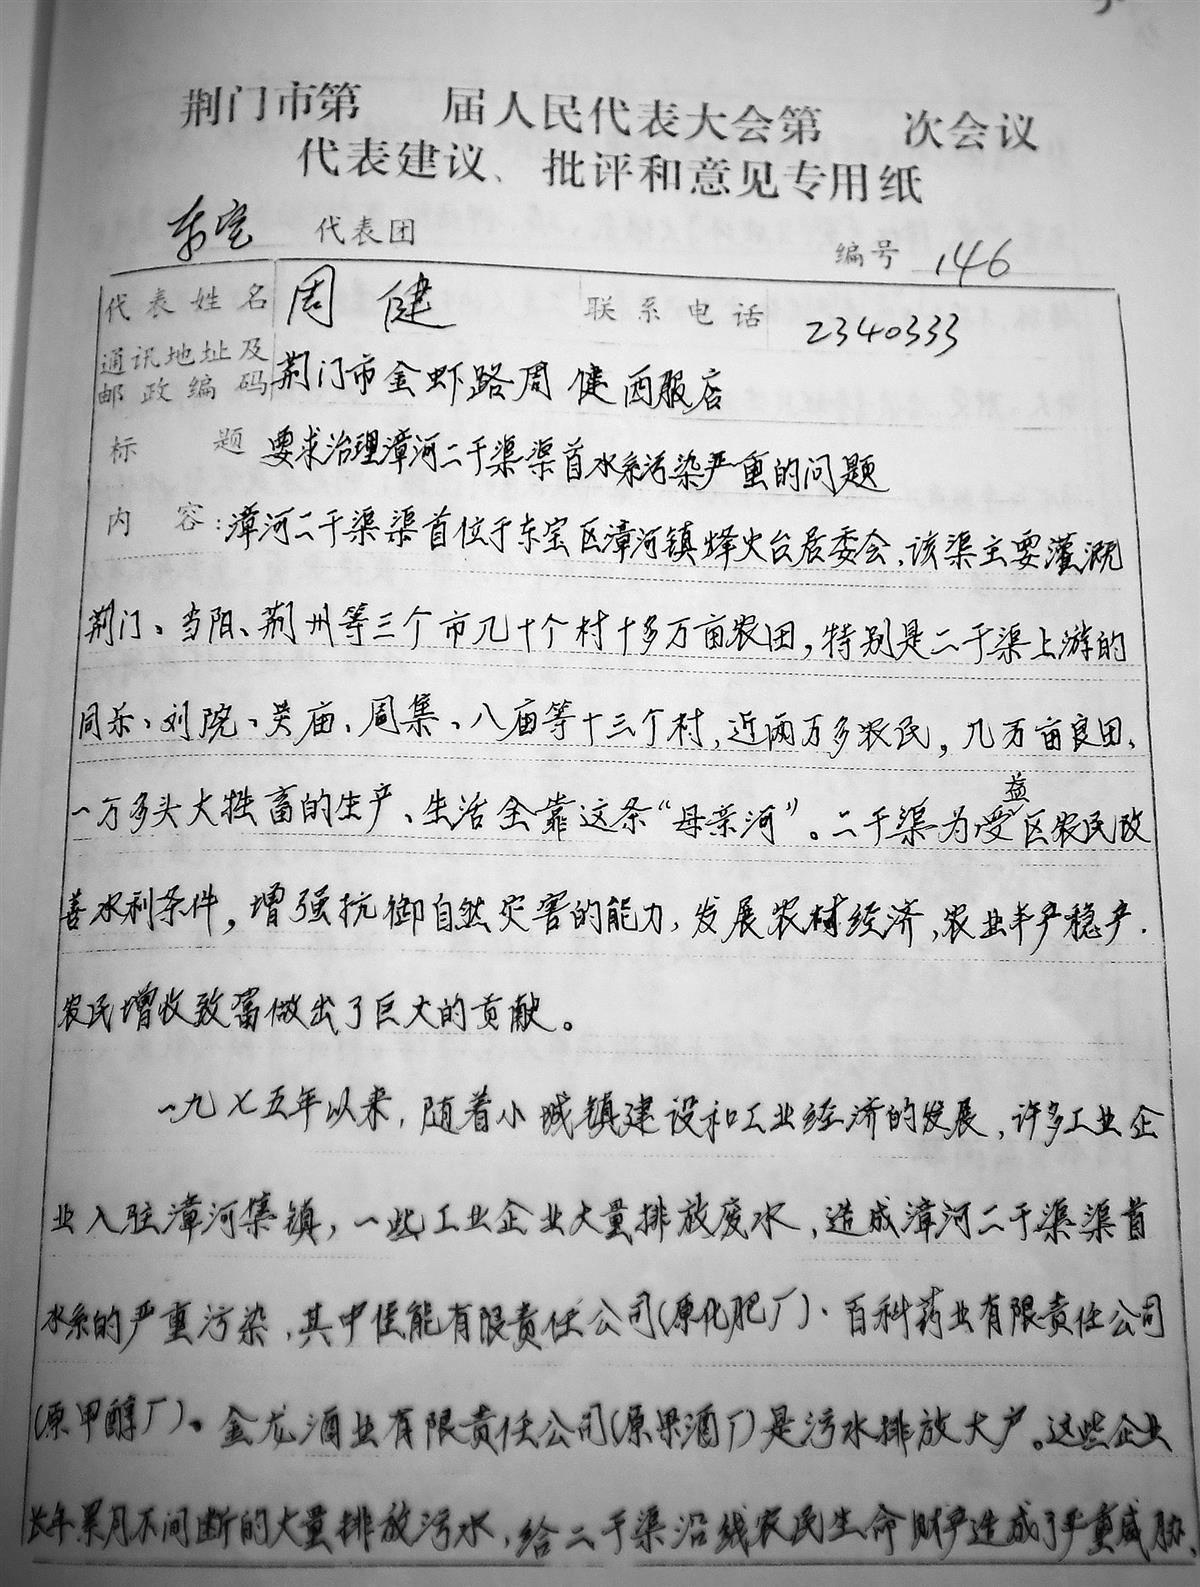 荆门市第 届人民代表大会第 次会议
代表建议、批评和意见专用纸
东宝 代表团 编号 146
代表姓名 周健 联系电话 2340333
通讯地址及
邮政编码 荆门市金虾路周健西服店
标题 要求治理漳河二干渠渠首水系污染严重的问题
内容:漳河二干渠渠首位于东宝区漳河镇烽火台居委会,该渠主要灌溉
荆门、当阳、荆州等三个市几十个村十多万亩农田,特别是二干渠上游的
同乐、刘院、关庙、周集、八庙等十三个村,近两万多农民,几万亩良田、
一万多头大牲畜的生产、生活全靠这条“母亲河”。二干渠为受益区农民改
善水利条件,增强抗御自然灾害的能力,发展农村经济,农业丰产稳产.
农民增收致富做出了巨大的贡献。
一九七五年以来,随着小城镇建设和工业经济的发展,许多工业企
业入驻漳河集镇,一些工业企业大量排放废水,造成漳河二干渠渠首
水系的严重污染,其中佳能有限责任公司(原化肥厂)、百科药业有限责任公司
(原甲醇厂)、金龙酒业有限责任公司(原果酒厂)是污水排放大户。这些企业
长年累月不间断的大量排放污水,给二干渠沿线农民生命财产造成了严重威胁、